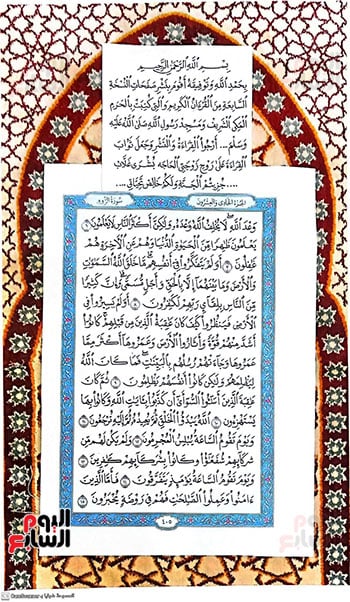 بِسْمِ اللَّهِ الرَّحْمَٰنِ الرَّحِيمِ
بِحَمْدِ اللَّهِ وَتَوْفِيقِهِ أَقُومُ بِنَشْرِ صَفَحَاتِ النُّسْخَةِ
السَّابِعَةِ مِنَ الْقُرْءَانِ الْكَرِيمِ وَالَّتِي كُتِبَتْ بِالْحَرَمِ
الْمَكِّيِّ الشَّرِيفِ وَمَسْجِدِ رَسُولِ اللَّهِ صَلَّى اللَّهُ عَلَيْهِ
وَسَلَّمَ ... أَرْجُوا الْقِرَاءَةَ وَالنَّشْرَ وَجَعْلَ ثَوَابَ
الْقِرَاءَةِ عَلَى رُوحِ زَوْجَتِي الْحَاجَّه بُشْرَى
.... جُزِيتُمُ الْجَنَّةَ وَلَكُمْ خَالِصُ تَحِيَّاتِي ...
الجُزْءُ الحَادِي وَالعِشْرُونَ سُورَةُ الرُّومِ
وَعْدَ ٱللَّهِ لَا يُخْلِفُ ٱللَّهُ وَعْدَهُۥ وَلَٰكِنَّ أَكْثَرَ ٱلنَّاسِ لَا يَعْلَمُونَ ٦
يَعْلَمُونَ ظَٰهِرًا مِّنَ ٱلْحَيَوٰةِ ٱلدُّنْيَا وَهُمْ عَنِ ٱلْأَخِرَةِ هُمْ
غَٰفِلُونَ ٧ أَوَلَمْ يَتَفَكَّرُوا۟ فِىٓ أَنفُسِهِم مَّا خَلَقَ ٱللَّهُ ٱلسَّمَٰوَٰتِ
وَٱلْأَرْضَ وَمَا بَيْنَهُمَآ إِلَّا بِٱلْحَقِّ وَأَجَلٍ مُّسَمًّى وَإِنَّ كَثِيرًا
مِّنَ ٱلنَّاسِ بِلِقَآئِ رَبِّهِمْ لَكَٰفِرُونَ ٨ أَوَلَمْ يَسِيرُوا۟ فِى
ٱلْأَرْضِ فَيَنظُرُوا۟ كَيْفَ كَانَ عَٰقِبَةُ ٱلَّذِينَ مِن قَبْلِهِمْ كَانُوٓا۟
أَشَدَّ مِنْهُمْ قُوَّةً وَأَثَارُوا۟ ٱلْأَرْضَ وَعَمَرُوهَآ أَكْثَرَ مِمَّا
عَمَرُوهَا وَجَآءَتْهُمْ رُسُلُهُم بِٱلْبَيِّنَٰتِ فَمَا كَانَ ٱللَّهُ
لِيَظْلِمَهُمْ وَلَٰكِن كَانُوٓا۟ أَنفُسَهُمْ يَظْلِمُونَ ٩ ثُمَّ كَانَ
عَٰقِبَةَ ٱلَّذِينَ أَسَٰٓـُٔوا۟ ٱلسُّوٓأَىٰٓ أَن كَذَّبُوا۟ بِـَٔايَٰتِ ٱللَّهِ وَكَانُوا۟ بِهَا
يَسْتَهْزِءُونَ ١٠ ٱللَّهُ يَبْدَؤُا۟ ٱلْخَلْقَ ثُمَّ يُعِيدُهُۥ ثُمَّ إِلَيْهِ تُرْجَعُونَ ١١
وَيَوْمَ تَقُومُ ٱلسَّاعَةُ يُبْلِسُ ٱلْمُجْرِمُونَ ١٢ وَلَمْ يَكُن لَّهُم مِّن
شُرَكَآئِهِمْ شُفَعَٰٓؤُا۟ وَكَانُوا۟ بِشُرَكَآئِهِمْ كَٰفِرِينَ ١٣
وَيَوْمَ تَقُومُ ٱلسَّاعَةُ يَوْمَئِذٍ يَتَفَرَّقُونَ ١٤ فَأَمَّا ٱلَّذِينَ
ءَامَنُوا۟ وَعَمِلُوا۟ ٱلصَّٰلِحَٰتِ فَهُمْ فِى رَوْضَةٍ يُحْبَرُونَ ١٥
٤٠٥
اليوم السابع
الممسوحة ضوئيا بـ CamScanner